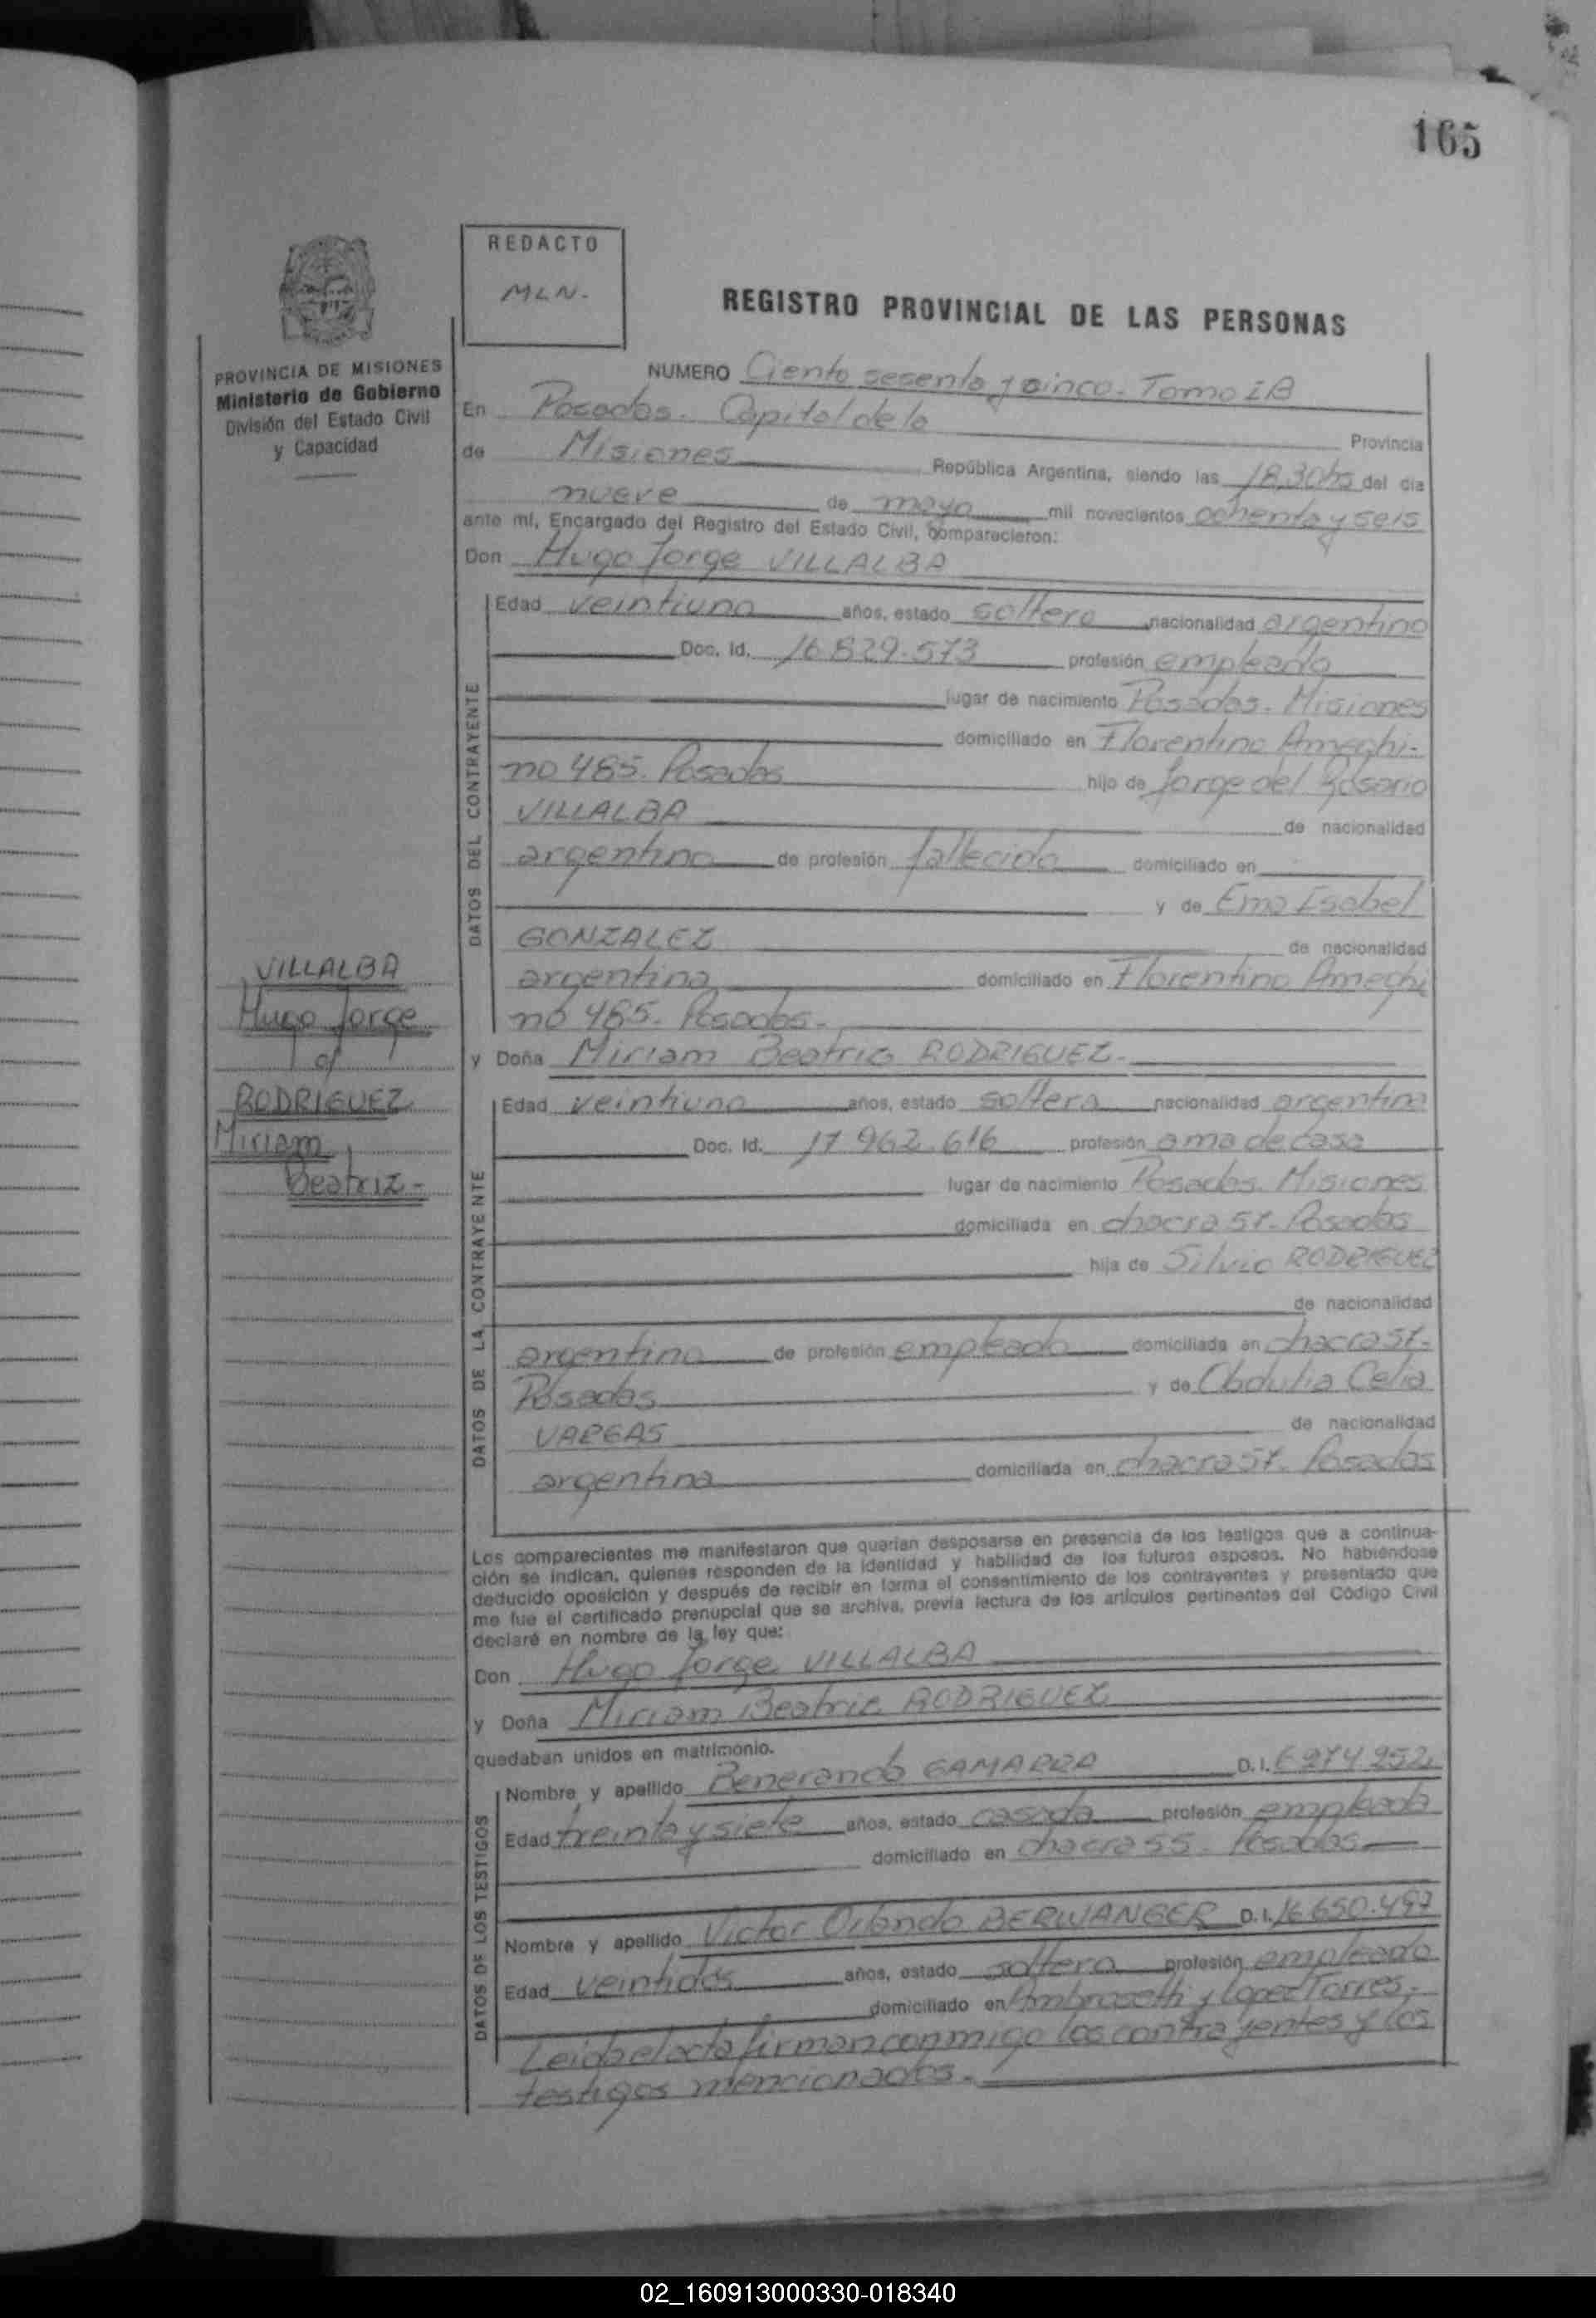 165
REDACTO
MLN.
REGISTRO PROVINCIAL DE LAS PERSONAS
PROVINCIA DE MISIONES
Ministerio de Gobierno
División del Estado Civil
y Capacidad
NUMERO Ciento sesenta y cinco. Tomo IB
En Posadas. Capital de la Provincia
de Misiones República Argentina, siendo las 18,30hs del día
nueve de mayo mil novecientos ochenta y seis
ante mí, Encargado del Registro del Estado Civil, comparecieron:
Don Hugo Jorge VILLALBA
DATOS DEL CONTRAYENTE
Edad veintiuno años, estado soltero nacionalidad argentino
Doc. Id. 16.829.573 profesión empleado
lugar de nacimiento Posadas. Misiones
domiciliado en Florentino Ameghi-
no 485. Posadas hijo de Jorge del Rosario
VILLALBA de nacionalidad
argentino de profesión fallecido domiciliado en
y de Ema Isabel
GONZALEZ de nacionalidad
argentina domiciliado en Florentino Ameghi
no 485. Posadas.
VILLALBA
Hugo Jorge
c/
RODRIGUEZ
Miriam
Beatriz-
y Doña Miriam Beatriz RODRIGUEZ.
DATOS DE LA CONTRAYENTE
Edad veintiuno años, estado soltera nacionalidad argentina
Doc. Id. 17.962.616 profesión ama de casa
lugar de nacimiento Posadas. Misiones
domiciliada en chacra Posadas
hija de Silvio RODRIGUEZ
de nacionalidad
argentino de profesión empleado domiciliado en chacra
Posadas y de Obdulia Celia
VARGAS de nacionalidad
argentina domiciliada en chacra Posadas
Los comparecientes me manifestaron que querían desposarse en presencia de los testigos que a continua-
ción se indican, quienes responden de la identidad y habilidad de los futuros esposos. No habiéndose
deducido oposición y después de recibir en forma el consentimiento de los contrayentes y presentado que
me fue el certificado prenupcial que se archiva, previa lectura de los artículos pertinentes del Código Civil
declaré en nombre de la ley que:
Don Hugo Jorge VILLALBA
y Doña Miriam Beatriz RODRIGUEZ
quedaban unidos en matrimonio.
DATOS DE LOS TESTIGOS
Nombre y apellido Benerando GAMARRA D.I. 6.974.952
Edad treinta y siete años, estado casado profesión empleado
domiciliado en chacra 55. Posadas
Nombre y apellido Victor Orlando BERWANGER D.I. 16.650.497
Edad veintidos años, estado soltero profesión empleado
domiciliado en Ambrosetti y Lopez Torres.
Leida el acta firman conmigo los contrayentes y los
testigos mencionados.
02_160913000330-018340